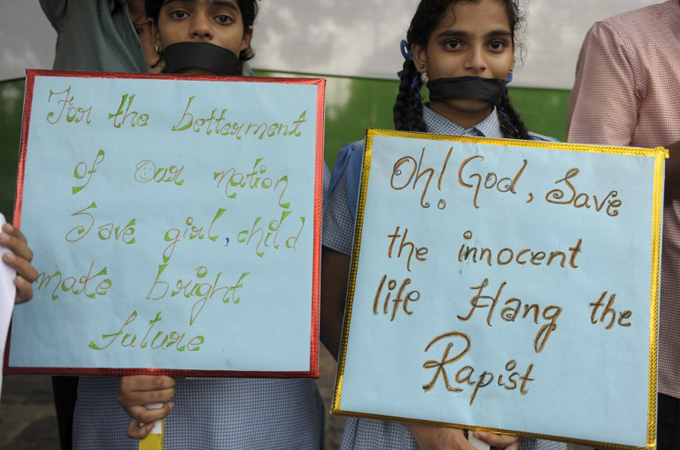 For the betterment
of Our nation
Save girl, child
make bright
future
Oh! God, Save
the innocent
life Hang the
Rapist